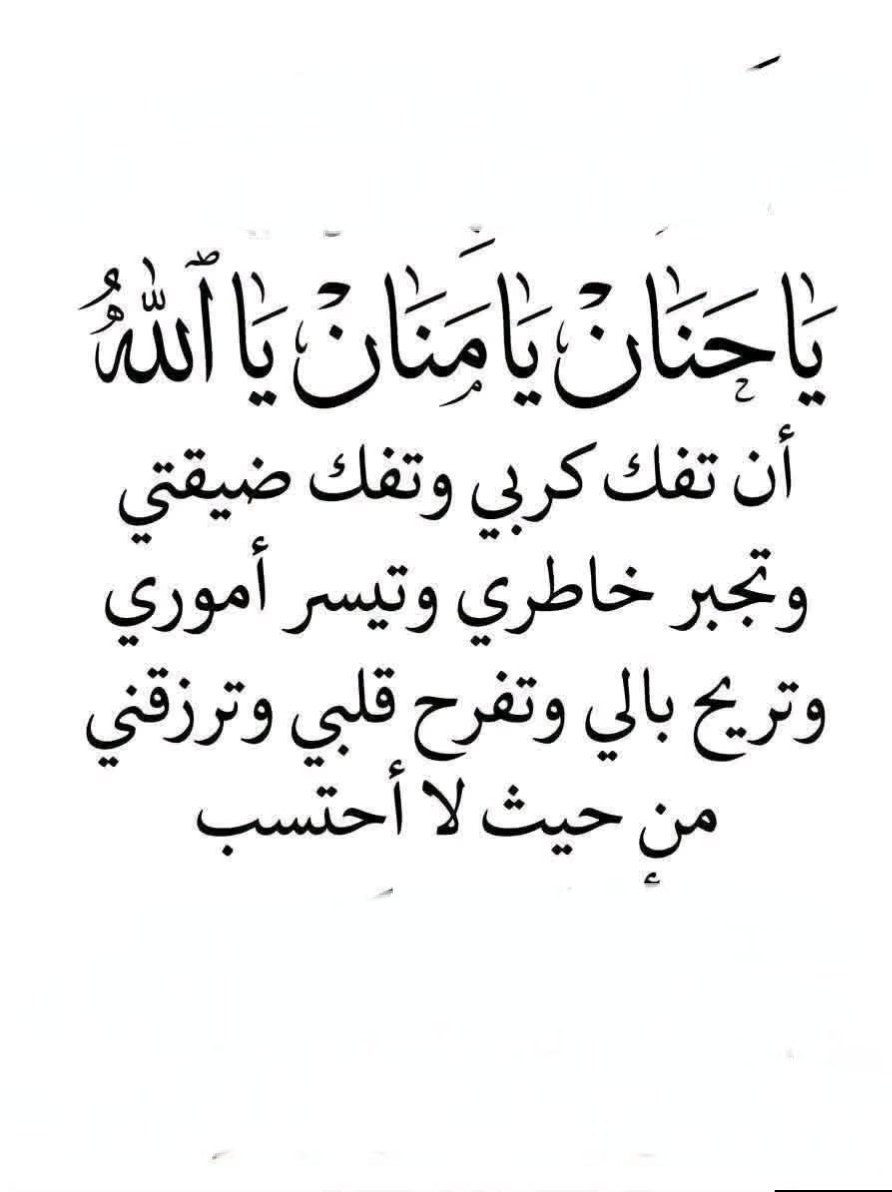 يَا حَنَانْ يَا مَنَانْ يَا ٱللهُ
أن تفك كربي وتفك ضيقتي
وتجبر خاطري وتيسر أموري
وتريح بالي وتفرح قلبي وترزقني
من حيث لا أحتسب